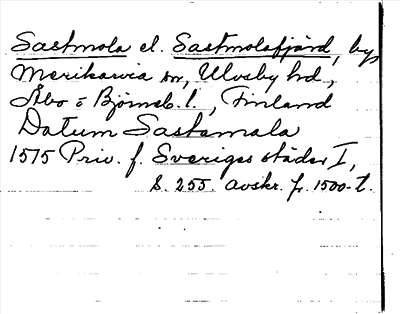 Sastmola el. Sastmolafjärd, by,
Merikarvia sn, Ulvsby hd,
Åbo o Björneb. l., Finland
Datum Sastamala
1575 Priv. f. Sveriges städer I,
s. 255. avskr. fr. 1500-t.